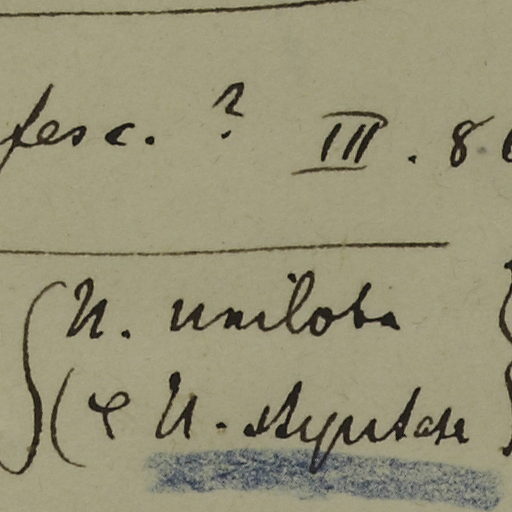 fesc. ? III. 8
{ U. uniloba
(e U. styptase